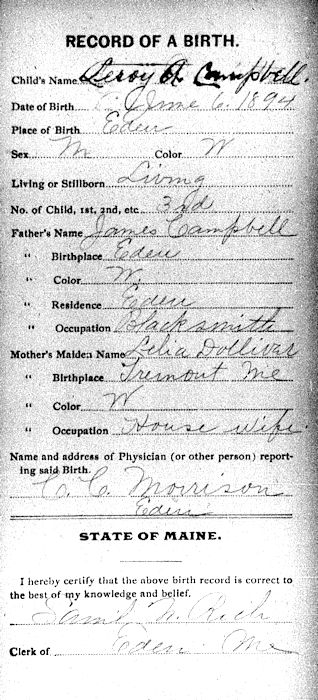 RECORD OF A BIRTH.
Child's Name Leroy A Campbell.
Date of Birth June 6. 1894
Place of Birth Eden
Sex M Color W
Living or Stillborn Living
No. of Child, 1st, 2nd, etc. 3rd
Father's Name James Campbell
" Birthplace Eden
" Color W
" Residence Eden
" Occupation Blacksmith
Mother's Maiden Name Lelia Dollivar
" Birthplace Tremont Me
" Color W
" Occupation House wife.
Name and address of Physician (or other person) report-
ing said Birth.
C. C. Morrison
Eden
STATE OF MAINE.
I hereby certify that the above birth record is correct to
the best of my knowledge and belief.
Saml N. Rich
Clerk of Eden Me